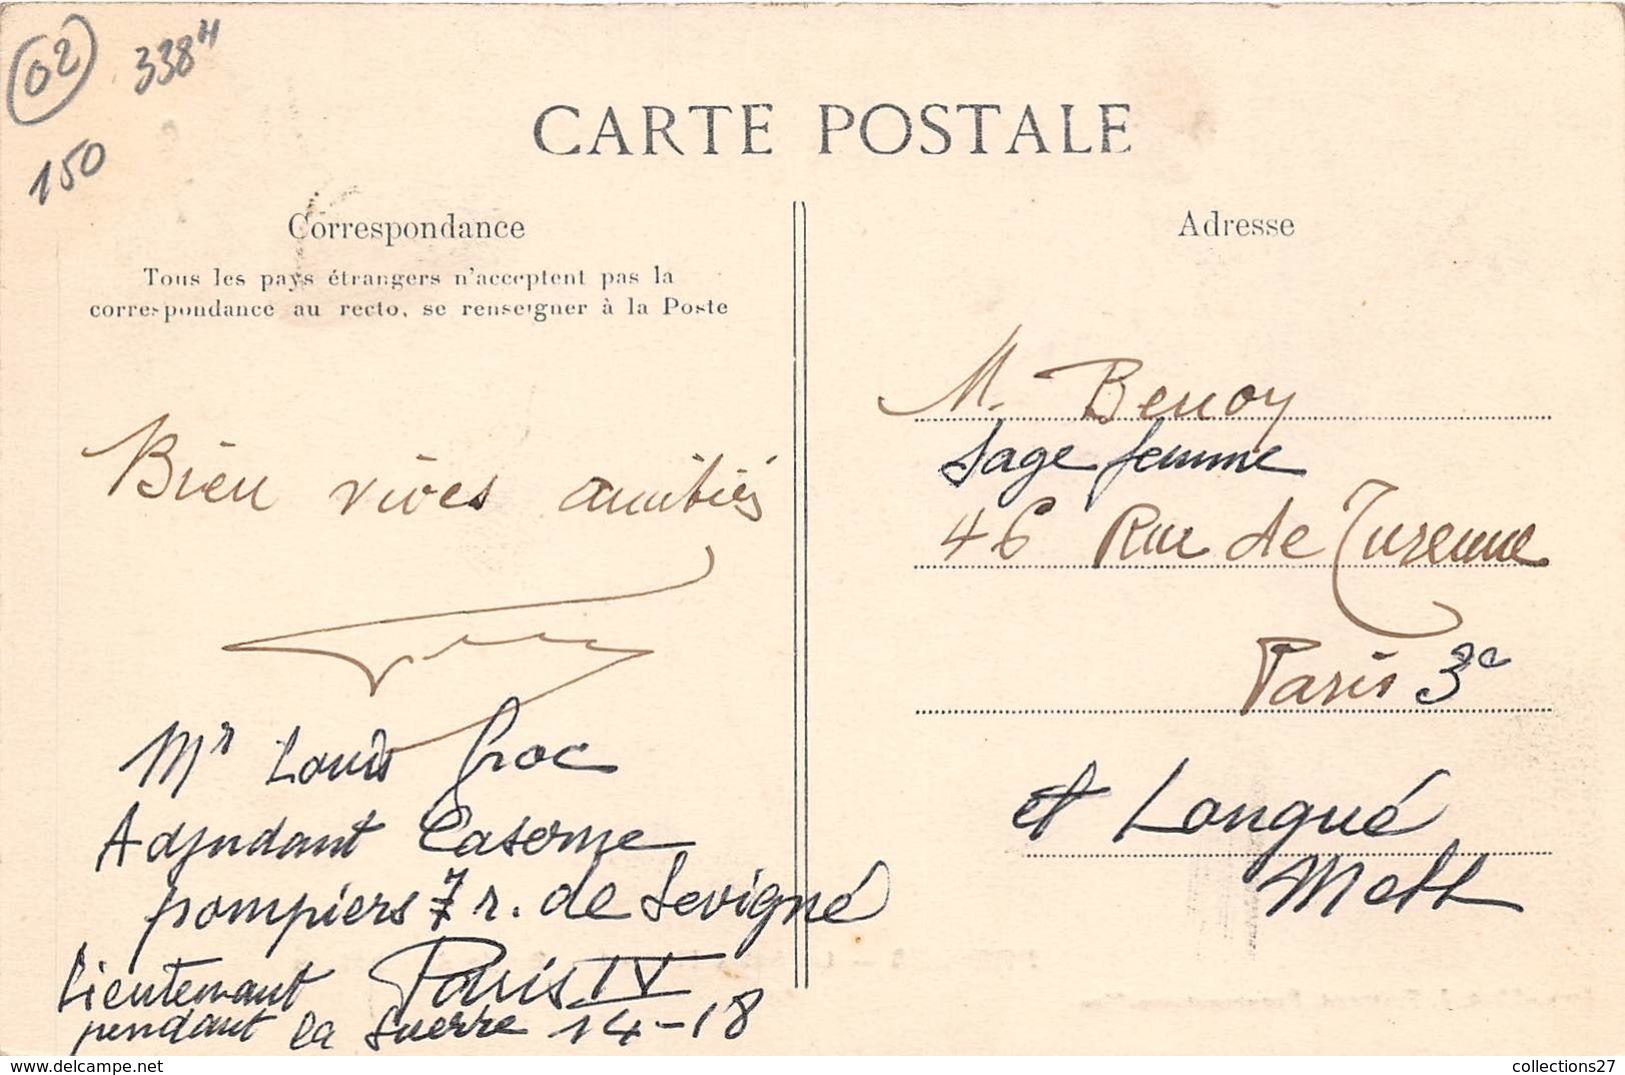 02
338 H
150
CARTE POSTALE
Correspondance
Tous les pays étrangers n'acceptent pas la
correspondance au recto, se renseigner à la Poste
Bien vives amitiés
Mr Louis Groc
Adjudant Caserne
pompiers 7 r. de Sevigné
Paris IV
Lieutenant
pendant la Guerre 14-18
Adresse
M. Benoy
Sage femme
46 Rue de Turenne
Paris 3e
et Longué
M et L
collections27